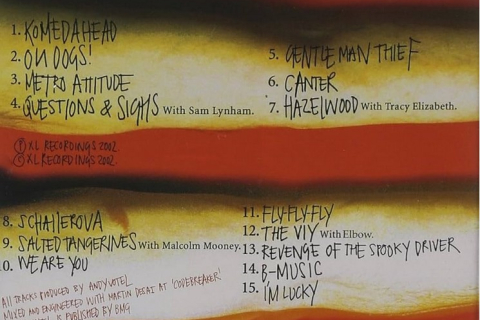 1. KOMEDAHEAD
2. OH DOGS!
3. METRO ATTITUDE
4. QUESTIONS & SIGHS With Sam Lynham.
5. GENTLEMAN THIEF
6. CANTER
7. HAZELWOOD With Tracy Elizabeth.
Ⓟ XL RECORDINGS 2002
© XL RECORDINGS 2002.
8. SCHALLEROVA
9. SALTED TANGERINES With Malcolm Mooney.
10. WE ARE YOU
11. FLY-FLY-FLY
12. THE VIY With Elbow.
13. REVENGE OF THE SPOOKY DRIVER
14. B-MUSIC
15. I'M LUCKY
All TRACKS PRODUCED BY ANDY VOTEL
MIXED AND ENGINEERED WITH MARTIN DESAI AT 'CODEBREAKER'
IS PUBLISHED BY BMG